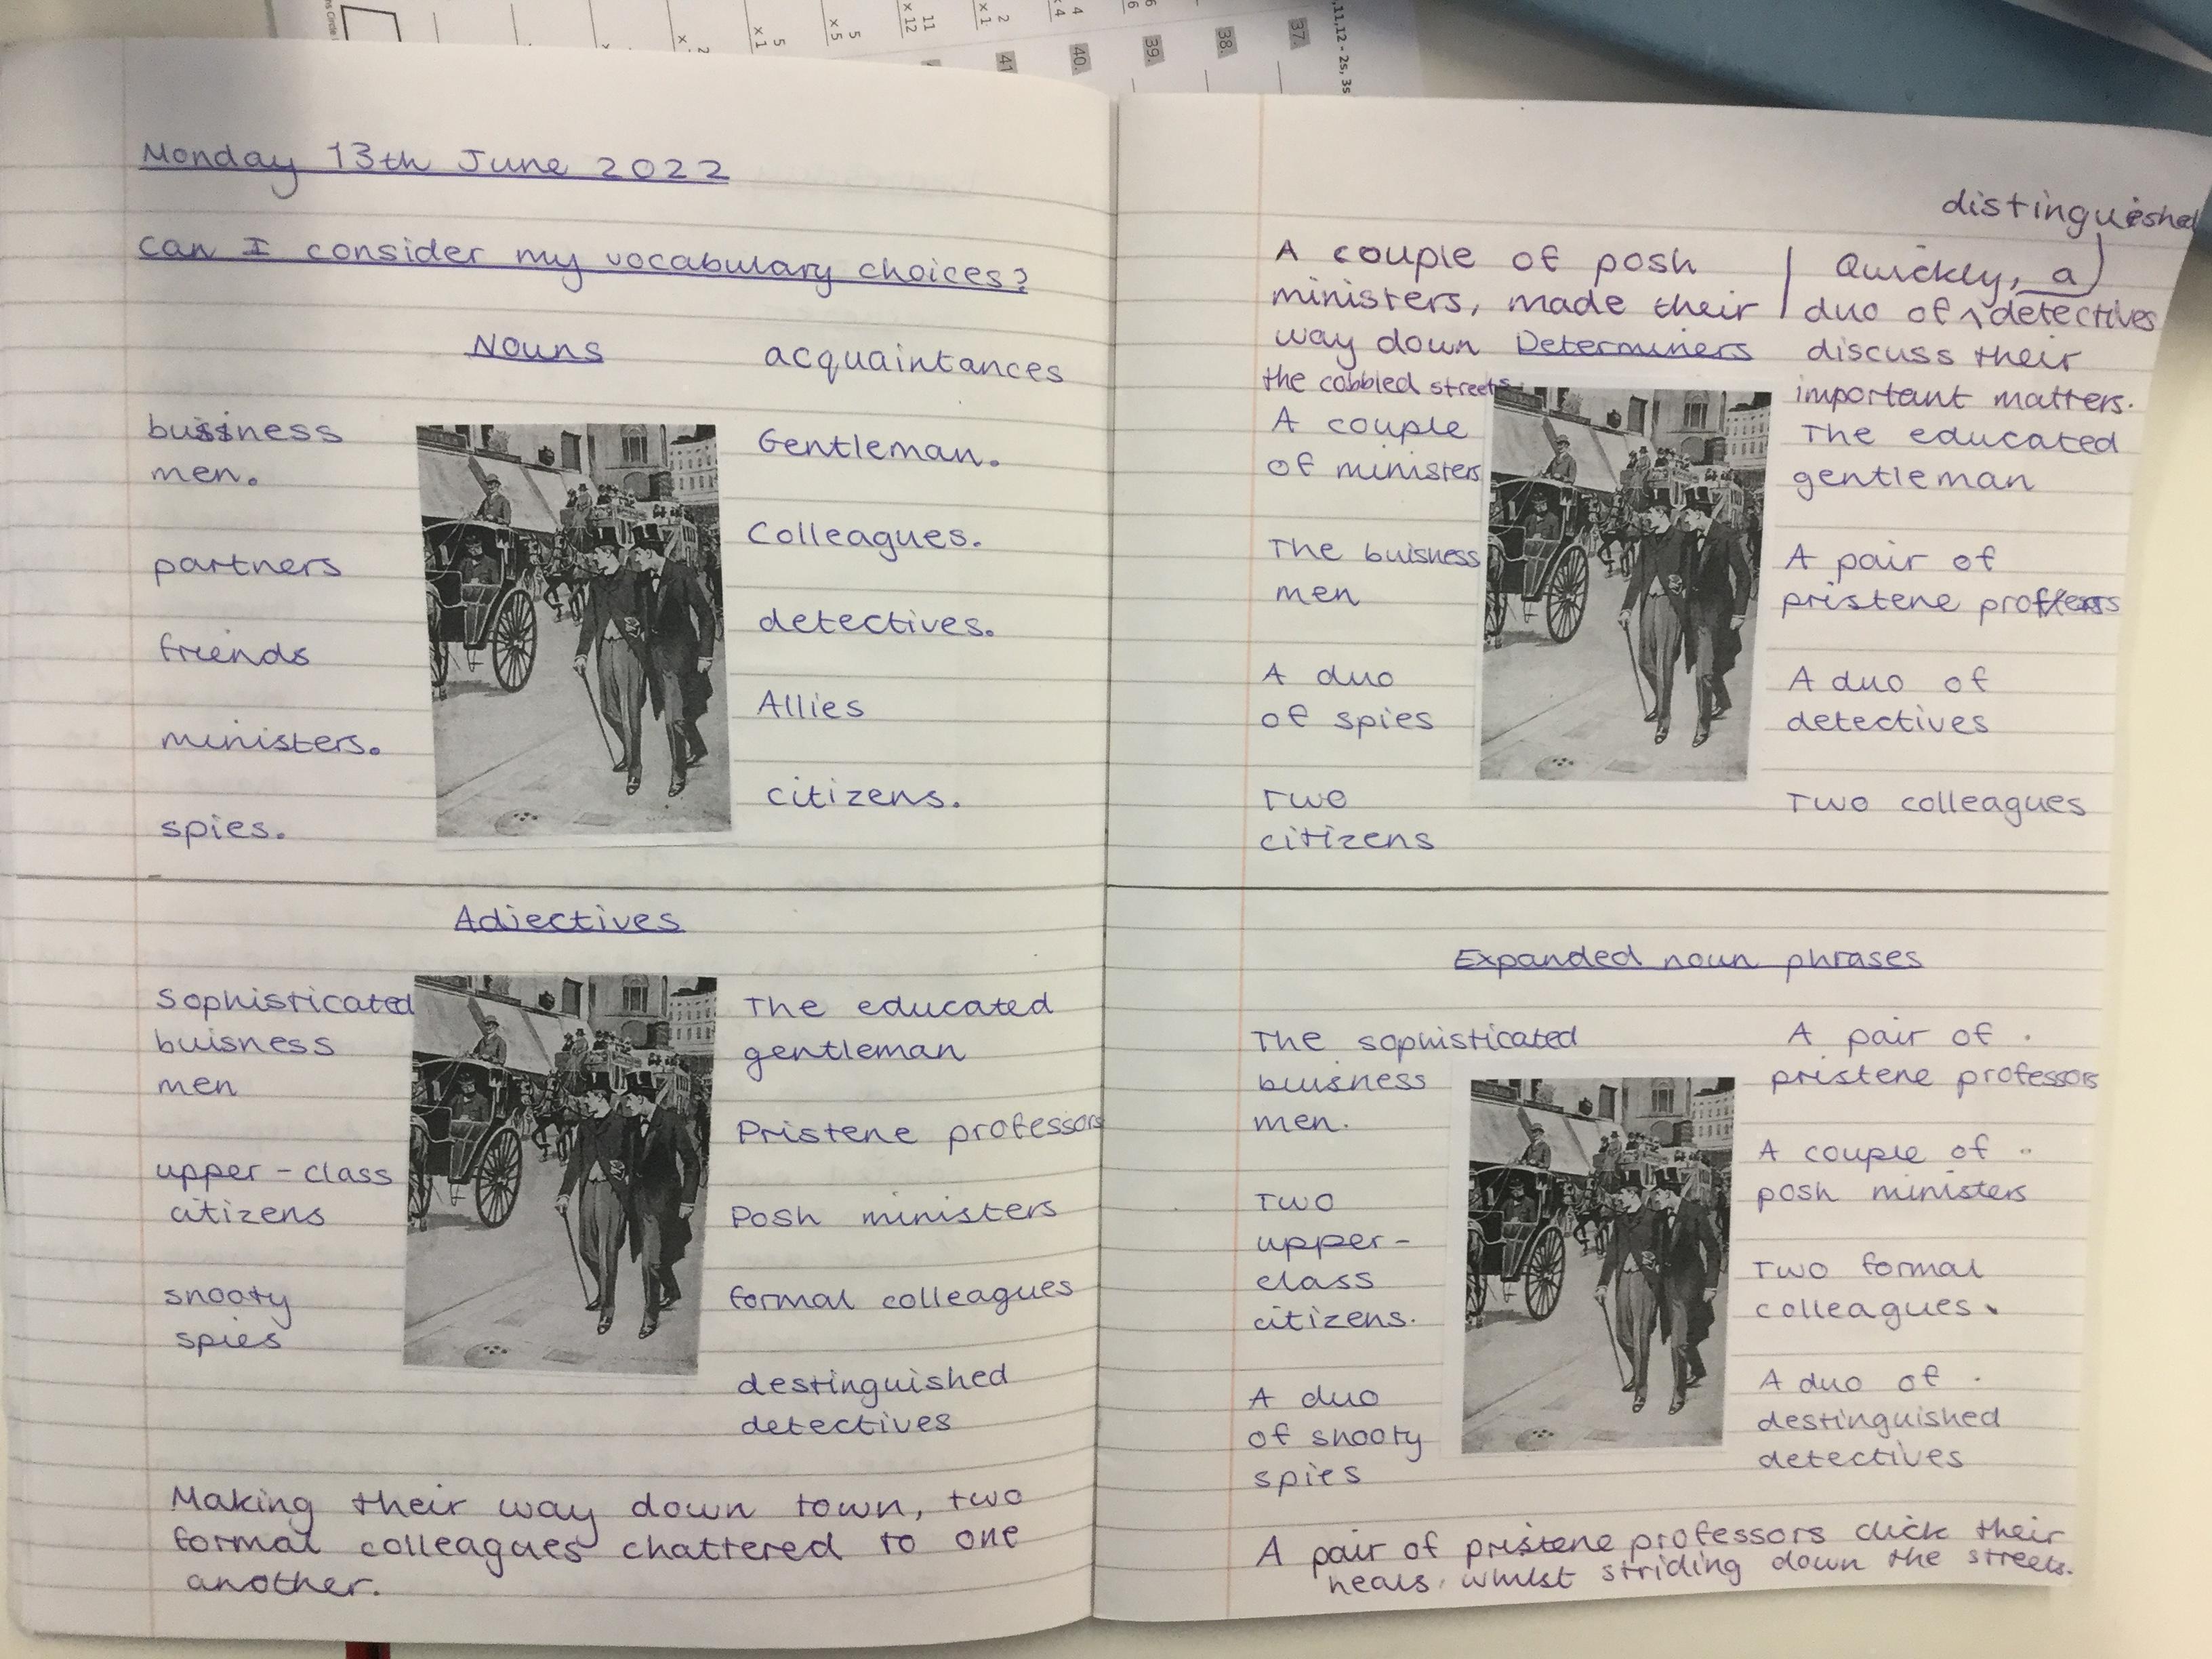 ,11,12 - 2s, 3s
37.
38.
39.
40.
41
Monday 13th June 2022
Can I consider my vocabulary choices?
Nouns
acquaintances
men.
partners
friends
ministers.
spies.
Gentleman.
Colleagues.
detectives.
Allies
citizens.
Adjectives
Sophisticated
buisness
men
upper-class
citizens
snooty
spies
The educated
gentleman
Pristene professors
Posh ministers
formal colleagues
destinguished
detectives
Making their way down town, two
formal colleagues chattered to one
another.
A couple of posh
ministers, made their
way down
the cobbled streets.
distinguished
Quickly, a
duo of ^ detectives
discuss their
important matters.
Determiners
A couple
of ministers
The buisness
men
A duo
of spies
Two
citizens
The educated
gentleman
A pair of
pristene
A duo of
detectives
Two colleagues
Expanded noun phrases
The sophisticated
buisness
men.
Two
upper-
class
citizens.
A duo
of snooty
spies
A pair of
pristene professors
A couple of
posh ministers
Two formal
colleagues.
A duo of
destinguished
detectives
A pair of pristene professors click their
heals, whilst striding down the streets.